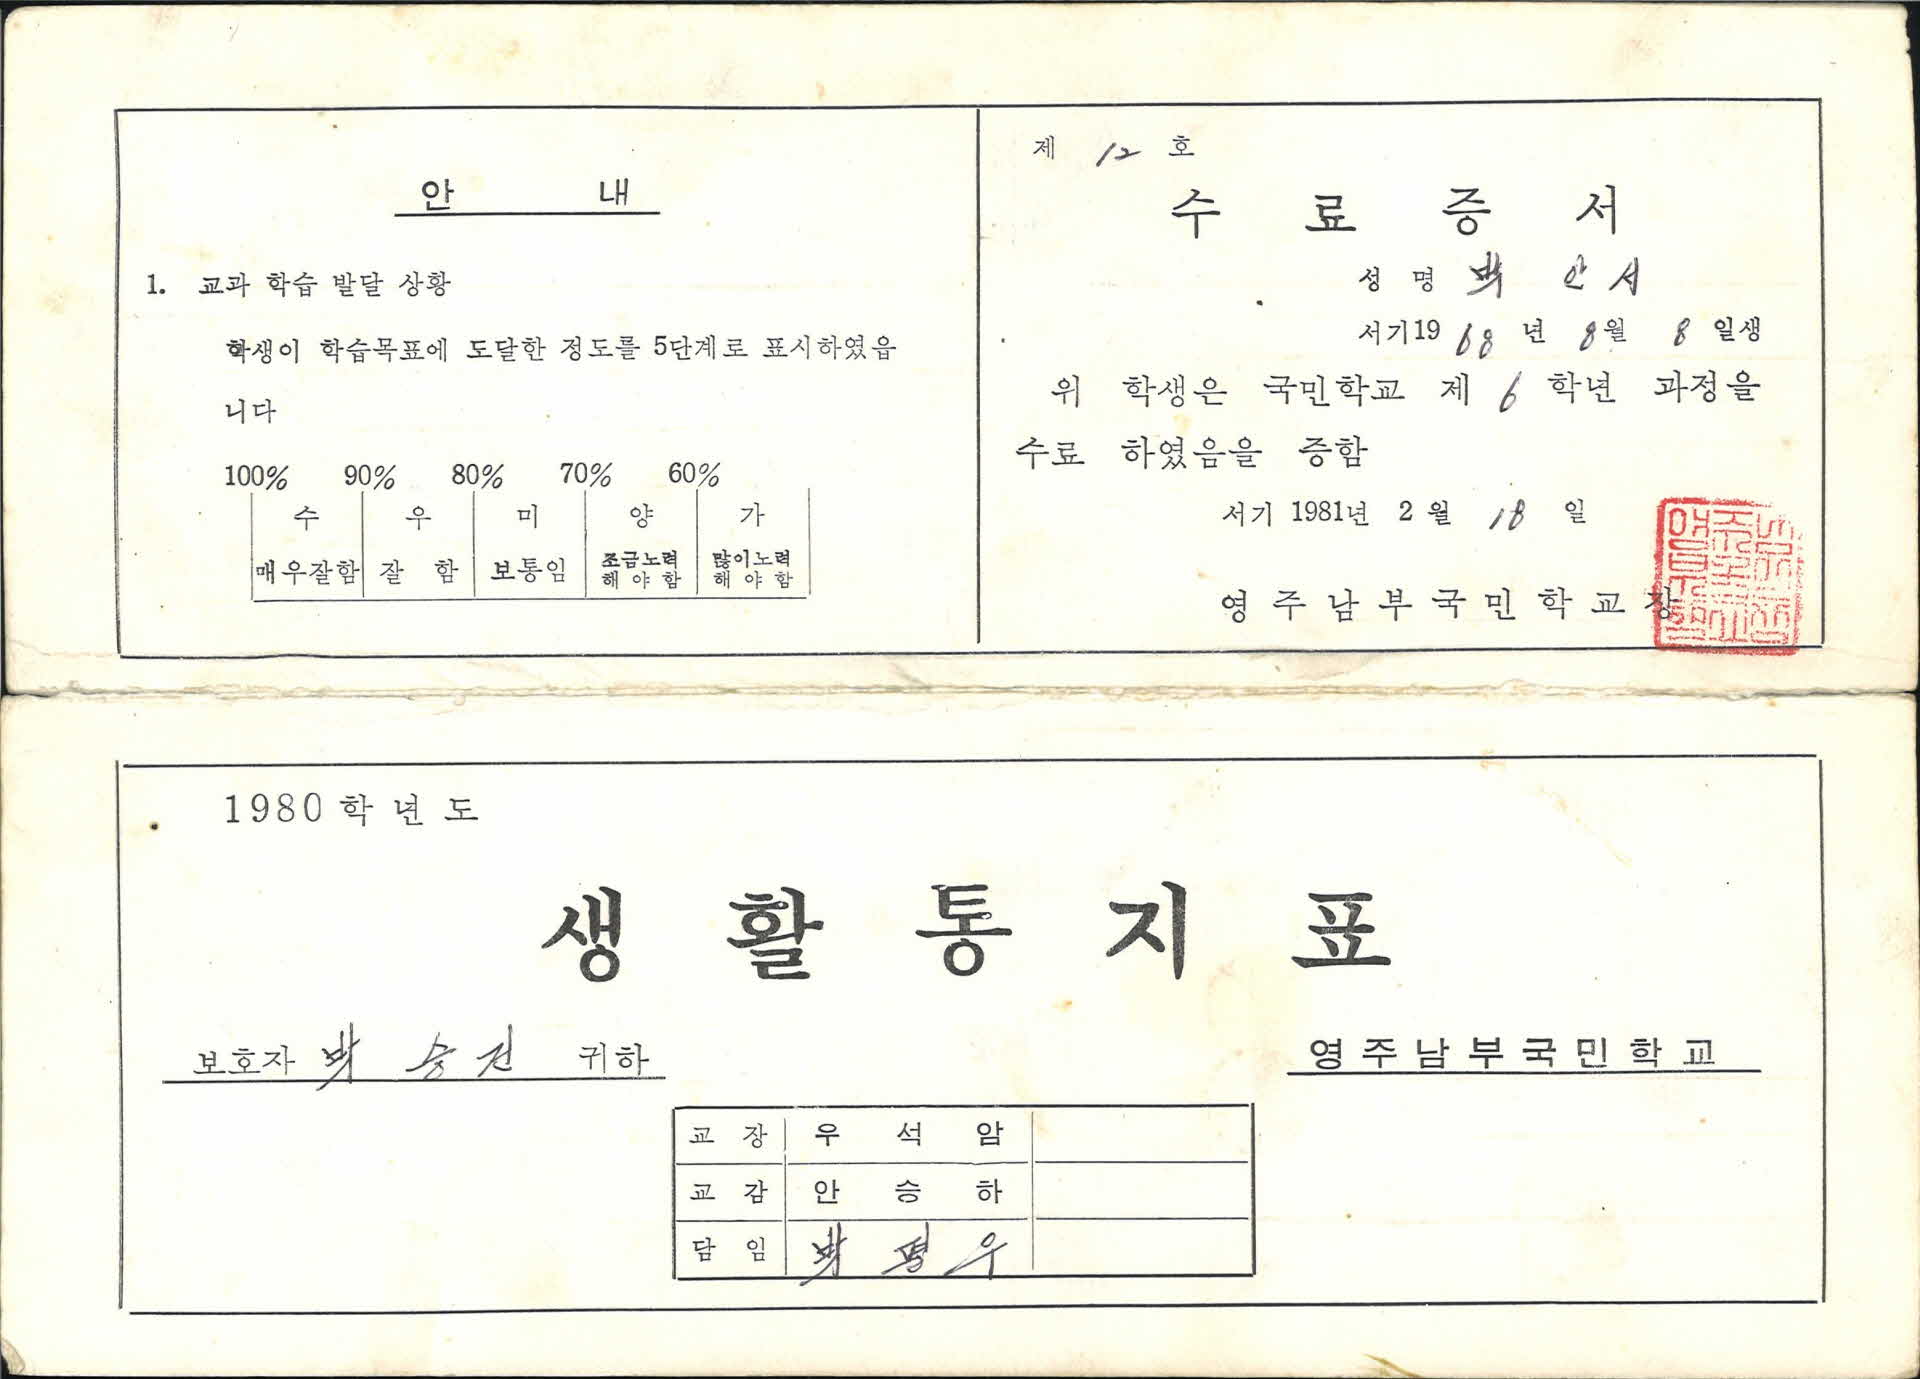 안 내
1. 교과 학습 발달 상황
학생이 학습목표에 도달한 정도를 5단계로 표시하였읍
니다
100% 90% 80% 70% 60%
수 우 미 양 가
매우잘함 잘 함 보통임 조금노력해야함 많이노력해야함
제 12 호
수 료 증 서
성 명 朴 안 서
서기 1968 년 8월 8 일생
위 학생은 국민학교 제 6 학년 과정을
수료 하였음을 증함
서기 1981년 2 월 18 일
영 주 남 부 국 민 학 교 장
1980 학 년 도
생 활 통 지 표
보호자 朴 승 진 귀하
영 주 남 부 국 민 학 교
교 장 우 석 암
교 감 안 승 하
담 임 朴 평 우